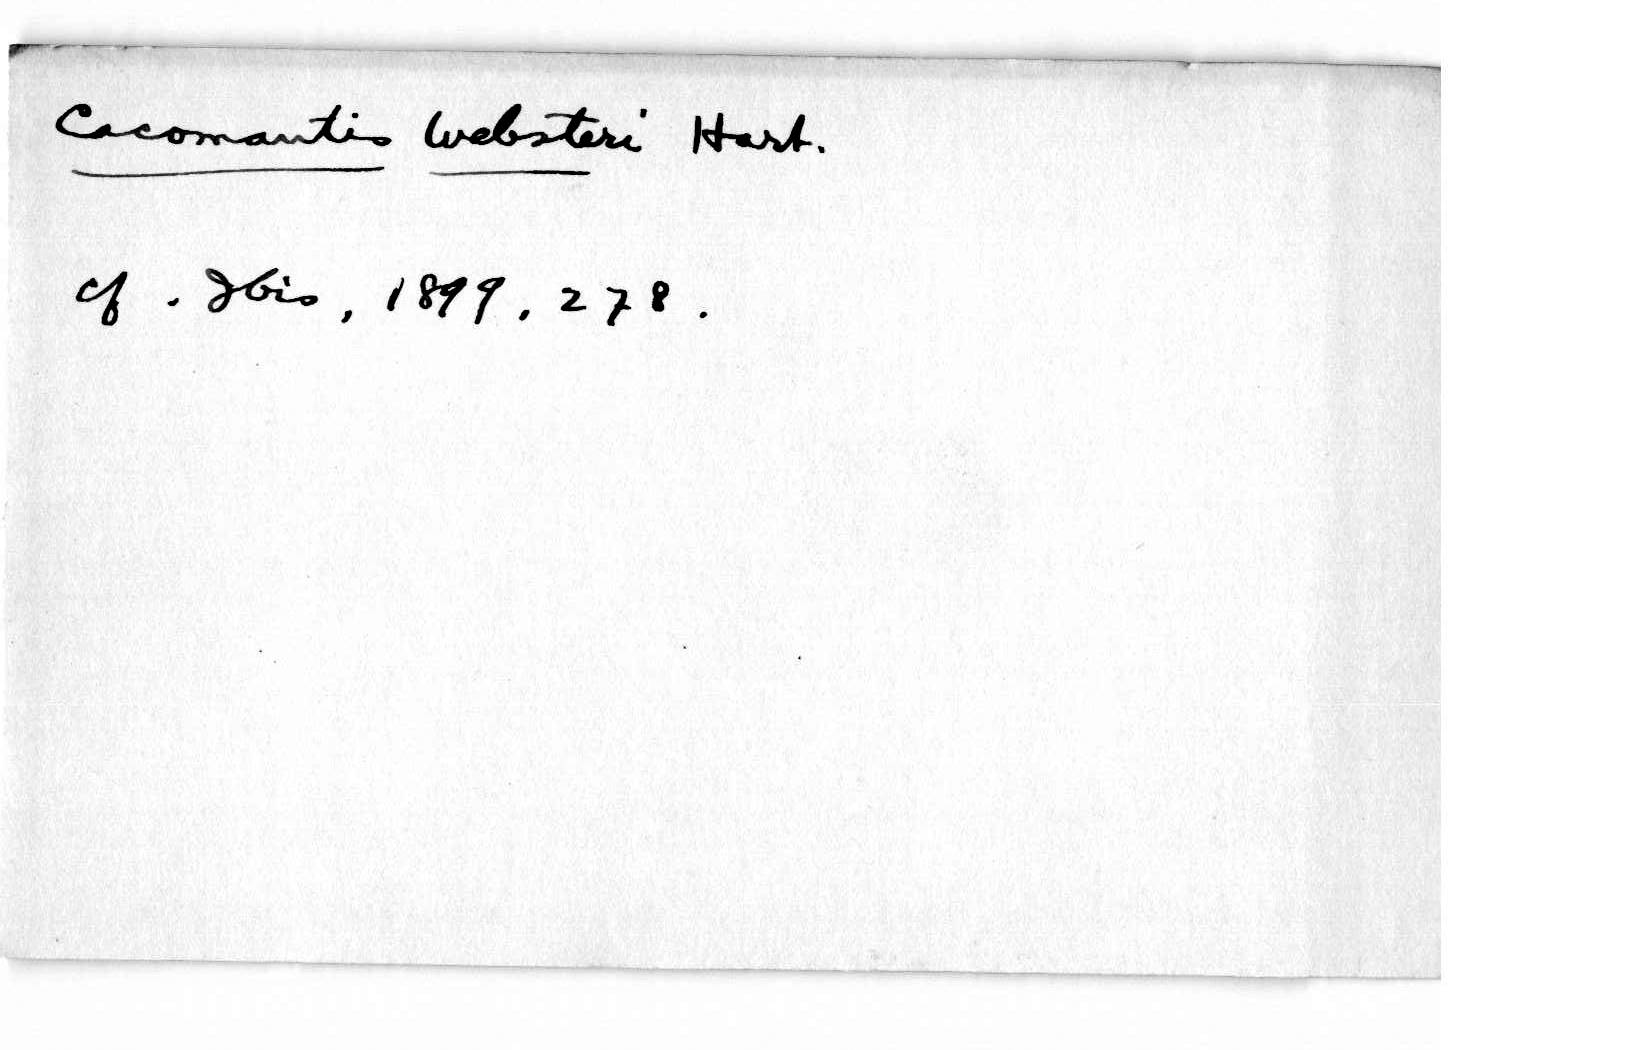 Cacomantis Websteri Hart.
cf. Ibis, 1899, 278.